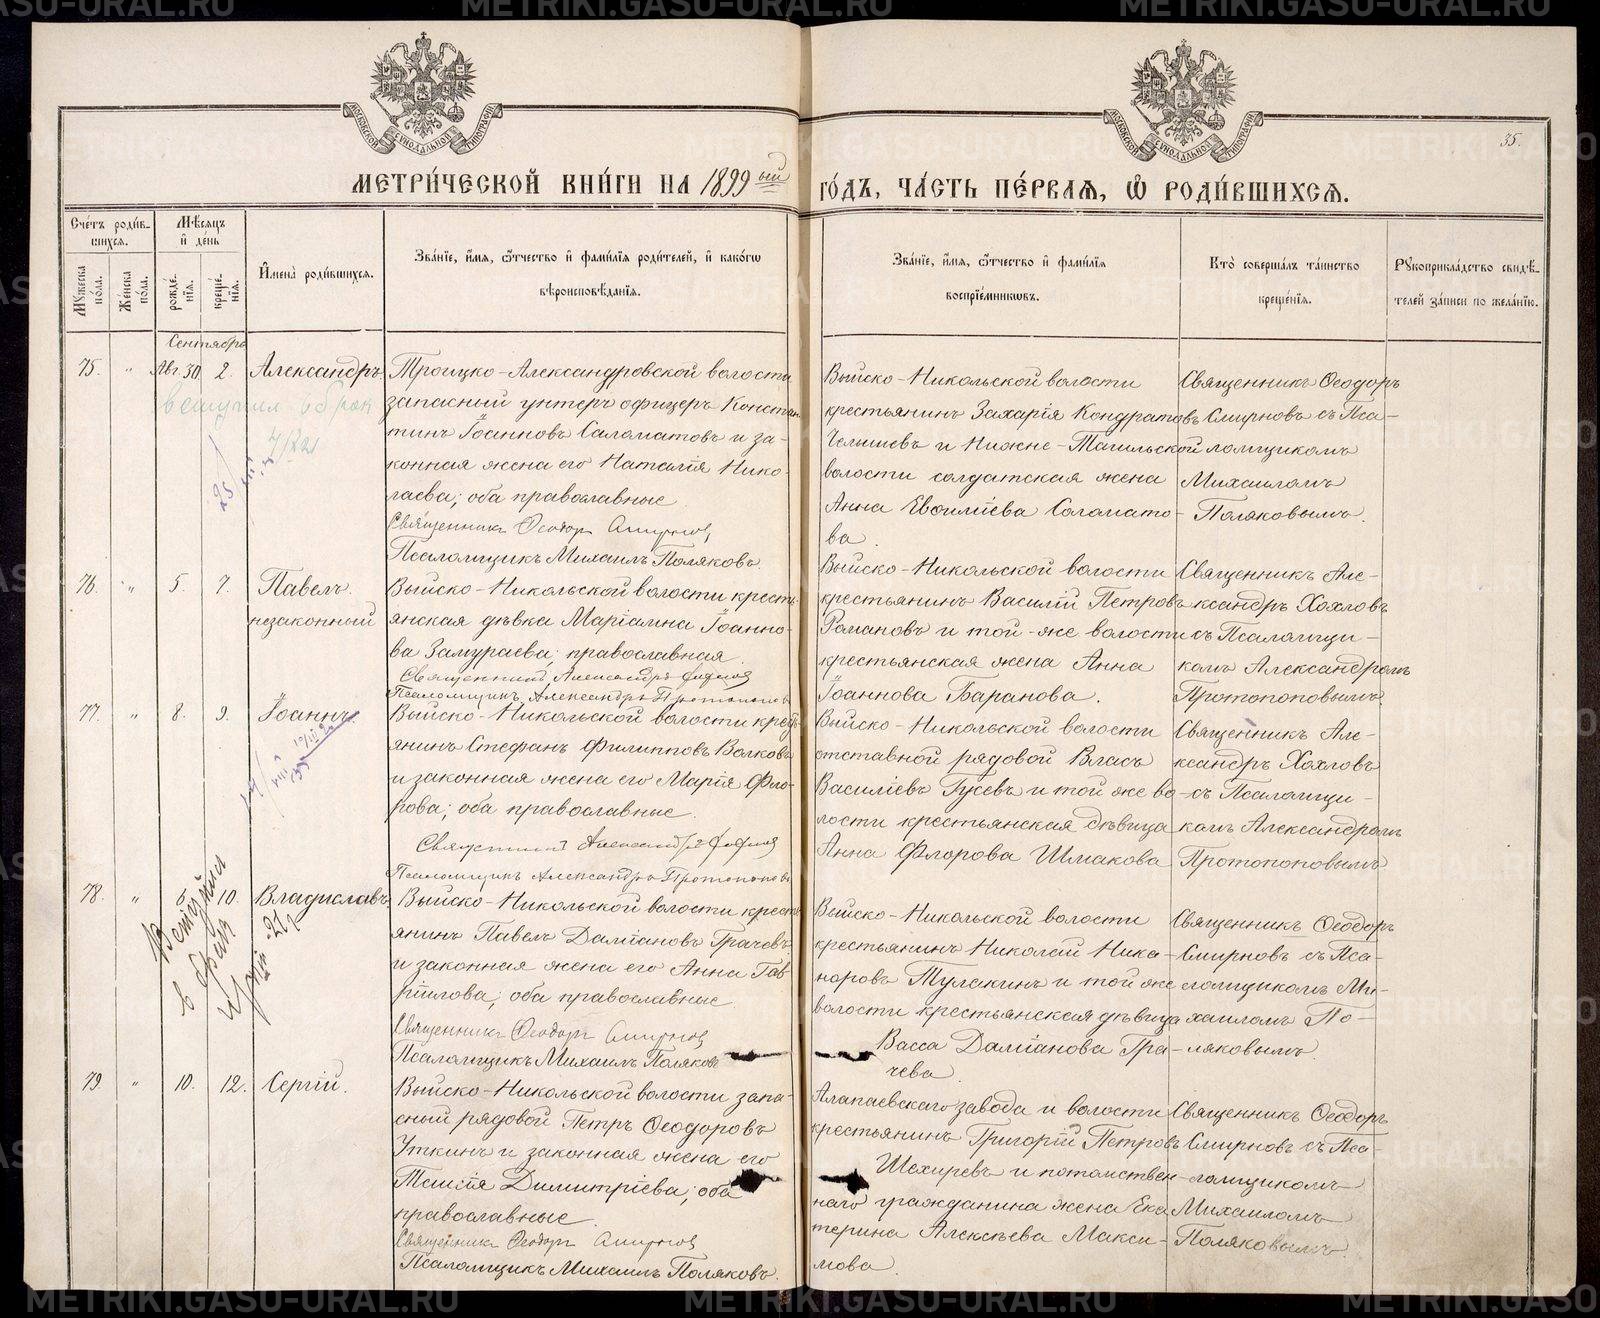 35.
МЕТРИ́ЧЕСКОЙ КНИ́ГИ НА 1899ый
ГО́ДЪ, ЧА́СТЬ ПЕ́РВАЯ, Ѽ РОДИ́ВШИХСЯ.
Сче́тъ роди́в-
шихся.
Мѣ́сяцъ
и҆ де́нь
Мꙋжеска по́ла.
Же́нска по́ла.
рожде́-
нїя.
креще́-
нїя.
И҆мена̀ роди́вшихся.
Зва́нїе, и҆́мя, ѻ҆́тчество и҆ фами́лїя роди́телей, и҆ како́гѡ
вѣроисповѣ́данїя.
Зва́нїе, и҆́мя, ѻ҆́тчество и҆ фами́лїя
воспрїе́мниковъ.
Кто̀ соверша́лъ та́инство
креще́нїя.
Рꙋкоприкла́дство свидѣ́-
телей за́писи по жела́нїю.
Сентябрь
75.
"
Авг. 30
2.
Александръ
Троицко-Александровской волости
запасный унтеръ офицеръ Констан
тинъ Іоанновъ Саломатовъ и за-
конная жена его Наталія Нико-
лаева; оба православные.
Священникъ Ѳеодоръ Смирновъ
Псаломщикъ Михаилъ Поляковъ.
Выйско-Никольской волости
крестьянинъ Захарія Кондратовъ
Челышевъ и Нижне-Тагильской
волости солдатская жена
Анна Евсиліева Саломато-
ва.
Священникъ Ѳеодоръ
Смирновъ съ Пса-
ломщикомъ
Михаиломъ
Поляковымъ.
вступил в брак
76.
"
5.
7.
Павелъ.
незаконный
Выйско-Никольской волости кресть-
янская дѣвка Маріамна Іоанно-
ва Замураева; православная.
Священникъ Александръ Хохловъ
Псаломщикъ Александръ Протопоповъ
Выйско-Никольской волости
крестьянинъ Василій Петровъ
Романовъ и той-же волости
крестьянская жена Анна
Іоаннова Баранова.
Священникъ Але-
ксандръ Хохловъ
съ Псаломщи-
комъ Александромъ
Протопоповымъ.
77.
"
8.
9.
Іоаннъ
Выйско-Никольской волости кресть-
янинъ Стефанъ Филипповъ Волковъ
и законная жена его Марія Фло-
рова; оба православные.
Священникъ Александръ Хохловъ
Псаломщикъ Александръ Протопоповъ
Выйско-Никольской волости
отставной рядовой Власъ
Василіевъ Гусевъ и той же во-
лости крестьянская дѣвица
Анна Флорова Шмакова
Священникъ Але-
ксандръ Хохловъ
съ Псаломщи-
комъ Александромъ
Протопоповымъ
78.
"
5.
10.
Владиславъ
Вступил
в брак
Выйско-Никольской волости кресть
янинъ Павелъ Даміановъ Грачевъ
и законная жена его Анна Гав-
ріилова; оба православные
Священникъ Ѳеодоръ Смирновъ
Псаломщикъ Михаилъ Поляковъ
Выйско-Никольской волости
крестьянинъ Николай Ника-
норовъ Тулакинъ и той же
волости крестьянская дѣвица
Васса Даміанова Гра-
чева.
Священникъ Ѳеодоръ
Смирновъ съ Пса-
ломщикомъ Ми-
хаиломъ По-
ляковымъ.
79.
"
10.
12.
Сергій.
Выйско-Никольской волости запа-
сный рядовой Петръ Ѳеодоровъ
Уткинъ и законная жена его
Таисія Димитріева; оба
православные.
Священникъ Ѳеодоръ Смирновъ
Псаломщикъ Михаилъ Поляковъ.
Алапаевскаго завода и волости
крестьянинъ Григорій Петровъ
Шехиревъ и потомствен-
наго гражданина жена Ека
терина Алексѣева Макси-
мова.
Священникъ Ѳеодоръ
Смирновъ съ Пса-
ломщикомъ
Михаиломъ
Поляковымъ.
METRIKI.GASU-URAL.RU